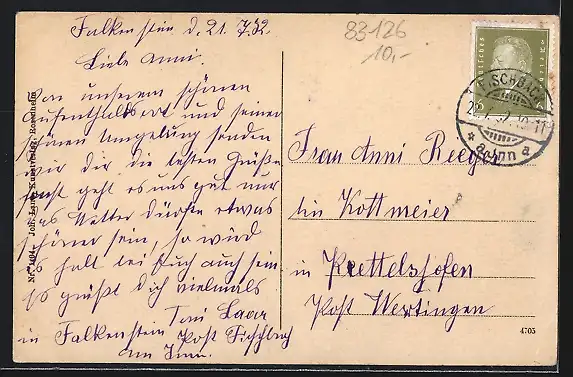 Falkenstein d. 21. 7. 32.
Liebe Anni.
Von unserem schönen
Aufenthaltsort und seiner
schönen Umgebung senden
wir dir die besten Grüße
sonst geht es uns gut nur
das Wetter dürfte etwas
schöner sein, so wird
es halt bei Euch auch sein
Es grüßt dich vielmals
Toni Laar
in Falkenstein Post Fischbach
am Inn.
83-126
10,-
Frau Anni Reeger
bei Kottmeier
in Krettelshofen
Post Wertingen
FISCHBACH
a. Inn a
Deutsches Reich
6
Nr. 1404 Joh. Laar, Kunstverlag, Rosenheim
4705